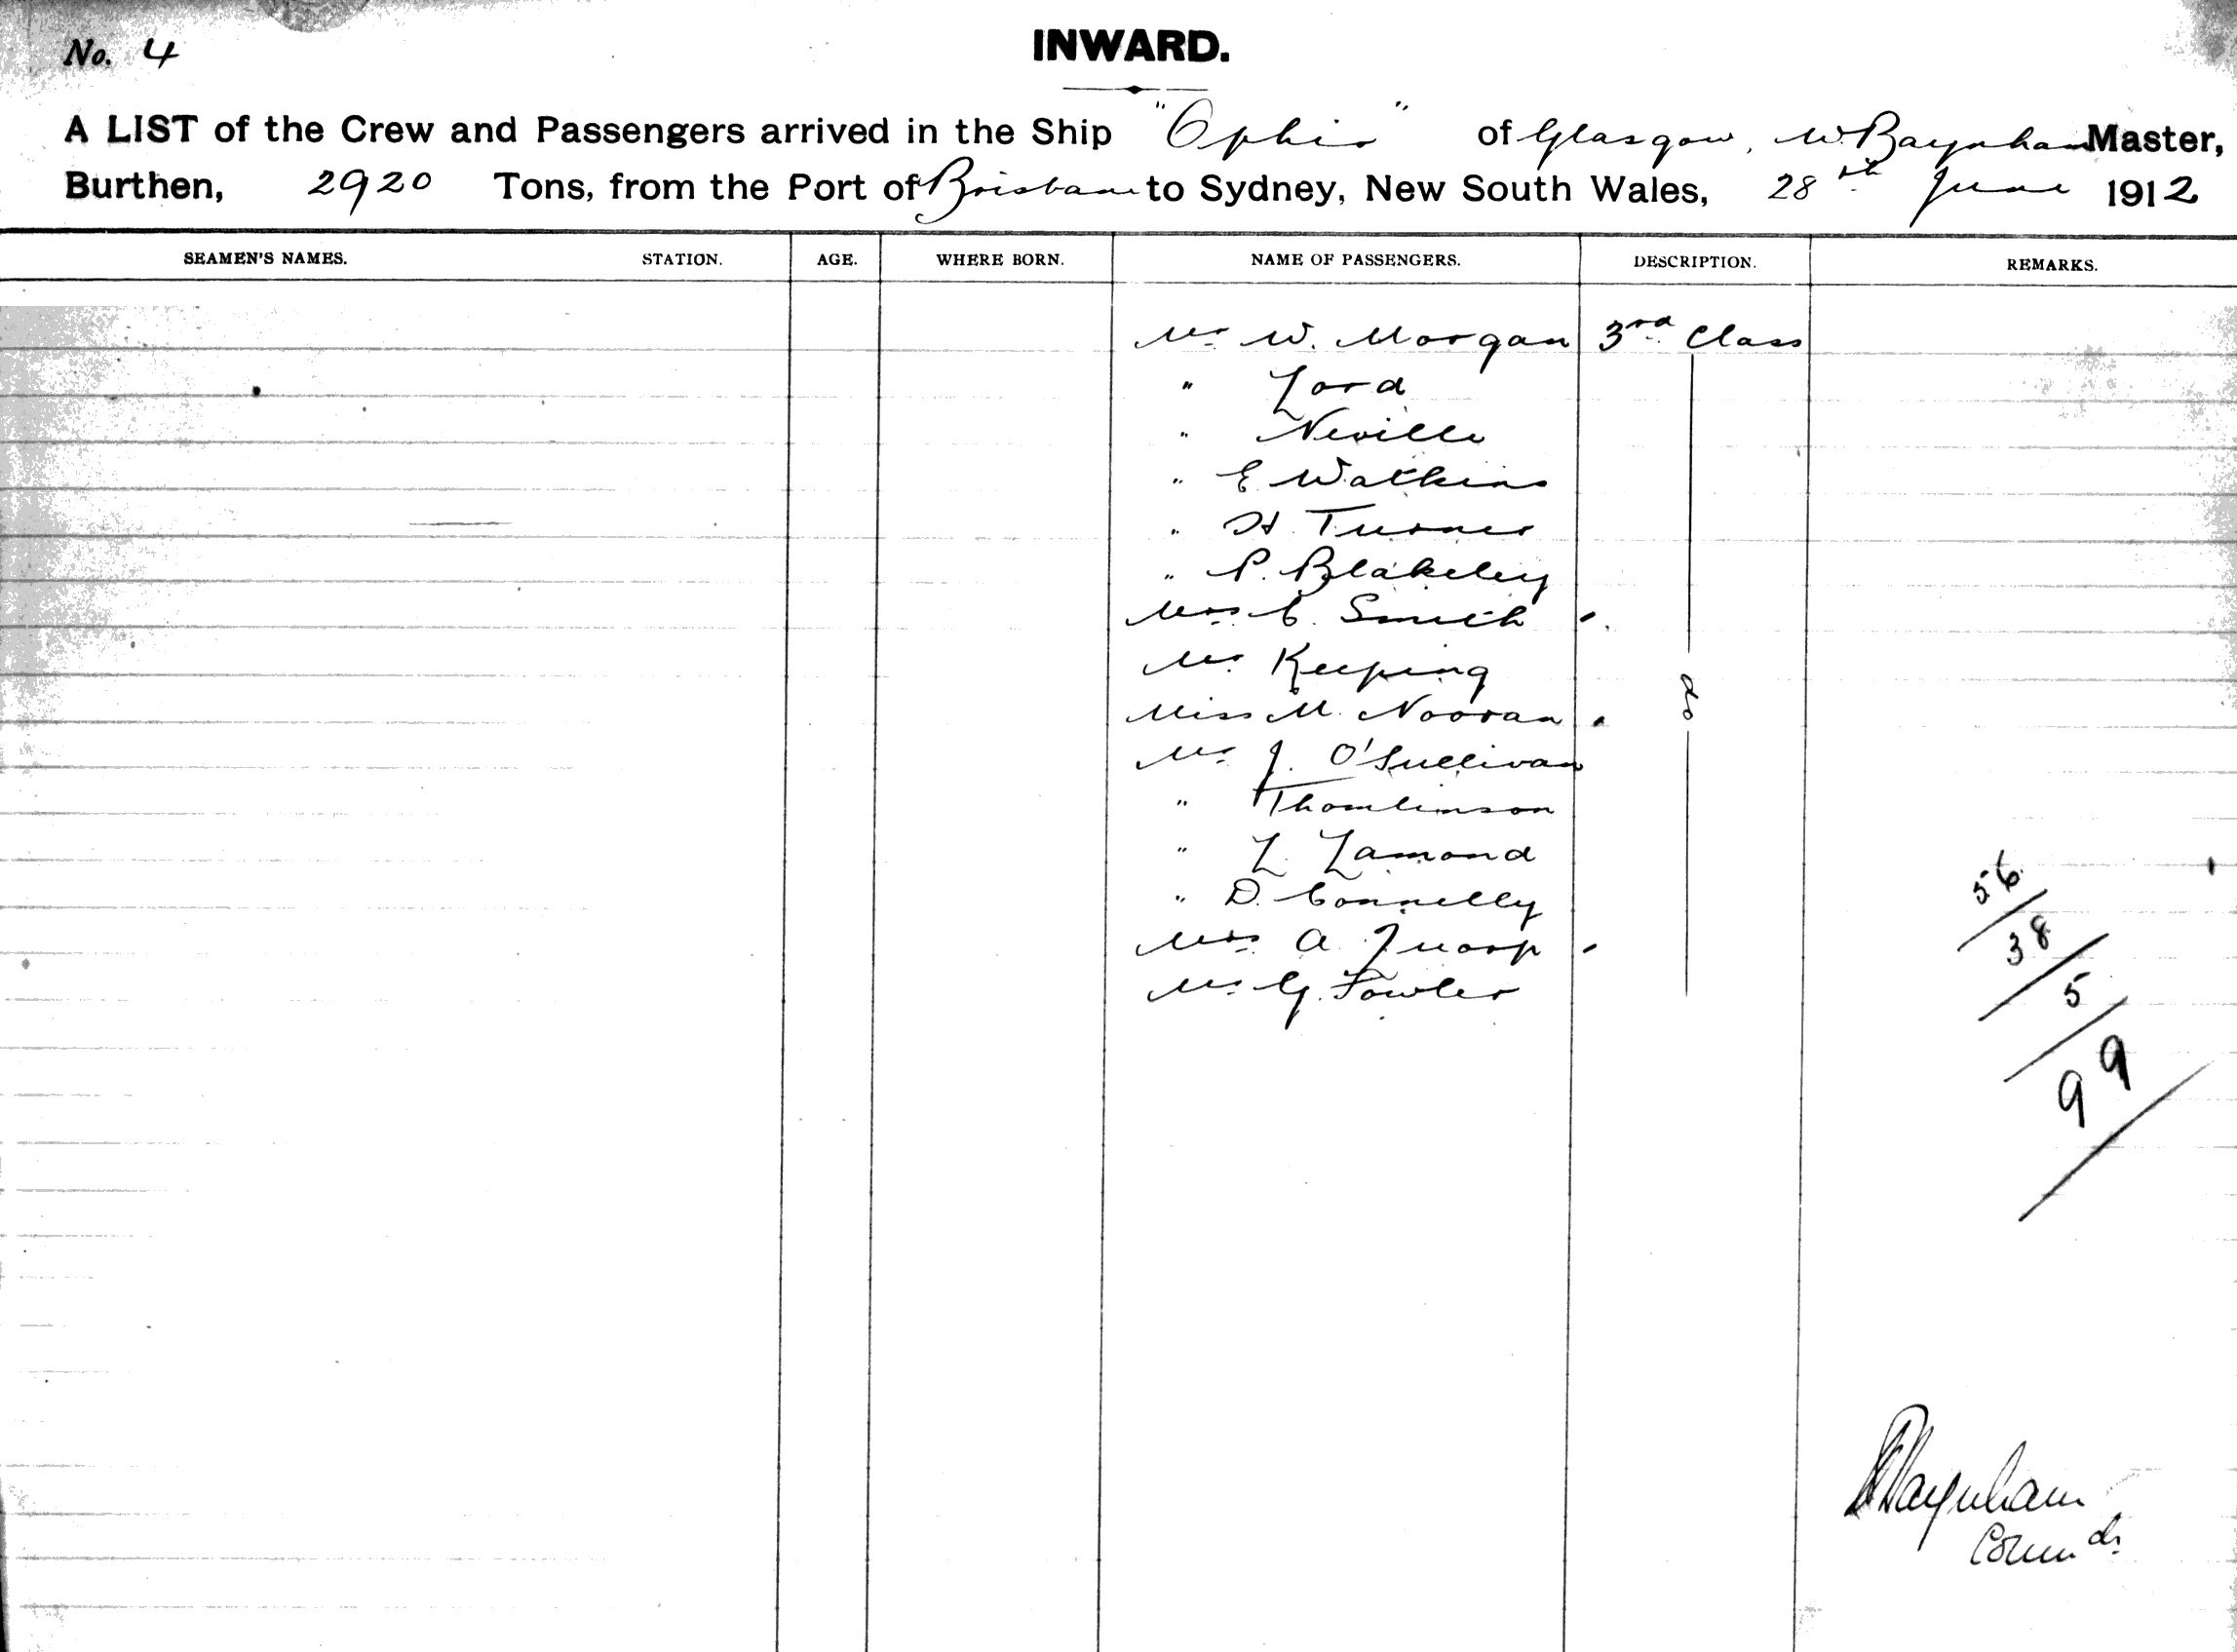 No. 4
INWARD.
A LIST of the Crew and Passengers arrived in the Ship "Ophir" of Glasgow, W. Baynham Master,
Burthen, 2920 Tons, from the Port of Brisbane to Sydney, New South Wales, 28th June 1912
SEAMEN'S NAMES. STATION. AGE. WHERE BORN. NAME OF PASSENGERS. DESCRIPTION. REMARKS.
Mr W. Morgan 3rd Class
" Lord
" Neville
" E Watkins
" H. Turner
" P. Blakeley
Mrs C. Smith
Mr Keeping
Miss M. Nooran do
Mr J. O'Sullivan
" Thomlinson
" L. Lamond
" D. Connelly
Mrs A.
Mr G. Fowler
56
38
5
99
Baynham
Comdr